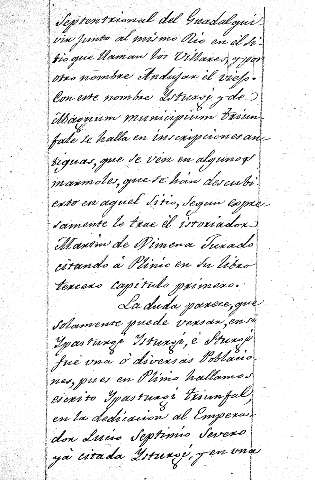 Septentrional del Guadalqui
vir junto al mismo Rio en el si
tio que llaman los Villares, y por
otro nombre Andujar el viejo.
Con este nombre Ysturgi y de
Magnum municipium triun
fale se halla en inscripciones an
tiguas, que se ven en algunos
marmoles, que se hán descubi
erto en aquel sitio, segun expre
samente lo trae él istoriador
Martin de Ximena Jurado
citando á Plinio en su libro
tercero capitulo primero.
La duda parece, que
solamente puede versar, en si
Ypasturgi Ysturgi, é Sturgi
fué una ó diversas Poblacio
nes, pues en Plinio hallamos
escrito Ypasturgi triunfal,
en la dedicacion al Empera
dor Lucio Septimio Severo
yá citada Ysturgi, y en una